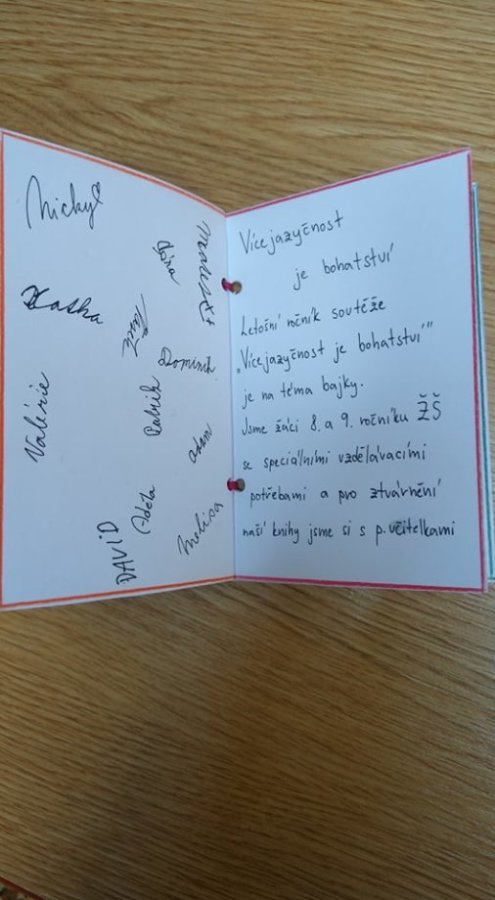 Nicky
Bára
Vlaška
Dominik
Patrik
Valérie
Adam
Adéla
Melisa
DAVID
Vícejazyčnost
je bohatství
Letošní ročník soutěže
"Vícejazyčnost je bohatství"
je na téma bajky.
Jsme žáci 8. a 9. ročníku ZŠ
se speciálními vzdělávacími
potřebami a pro ztvárnění
naší knihy jsme si s p. učitelkami